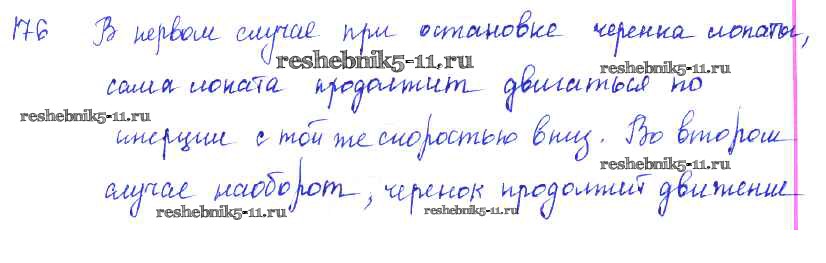 176 В первом случае при остановке черенка лопаты,
reshebnik5-11.ru
reshebnik5-11.ru
сама лопата продолжит двигаться по
reshebnik5-11.ru
инерции с той же скоростью вниз. Во втором
reshebnik5-11.ru
случае наоборот, черенок продолжит движение
reshebnik5-11.ru
reshebnik5-11.ru